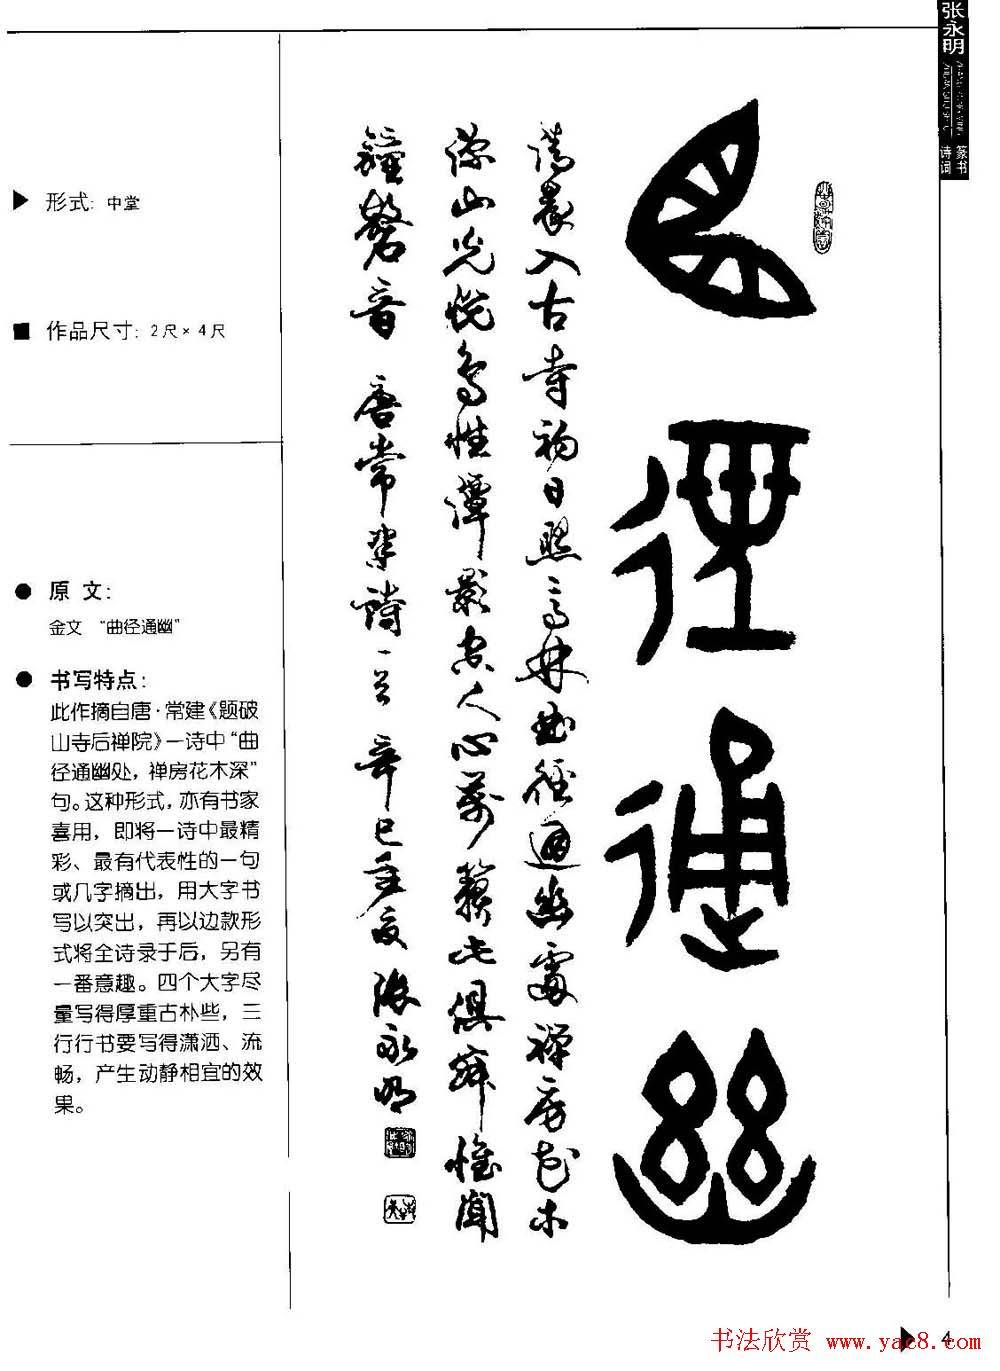 张永明
篆书
诗词
形式：中堂
作品尺寸：2尺×4尺
原 文：
金文 “曲径通幽”
书写特点：
此作摘自唐·常建《题破
山寺后禅院》一诗中“曲
径通幽处，禅房花木深”
句。这种形式，亦有书家
喜用，即将一诗中最精
彩、最有代表性的一句
或几字摘出，用大字书
写以突出，再以边款形
式将全诗录于后，另有
一番意趣。四个大字尽
量写得厚重古朴些，三
行行书要写得潇洒、流
畅，产生动静相宜的效
果。
曲径通幽
清晨入古寺初日照高林曲径通幽處禅房花木
深山光悦鸟性潭影空人心萬籁此俱寂惟闻
鐘磬音 唐常建诗一首 辛巳重夏 张永明
4
书法欣赏 www.yac8.com